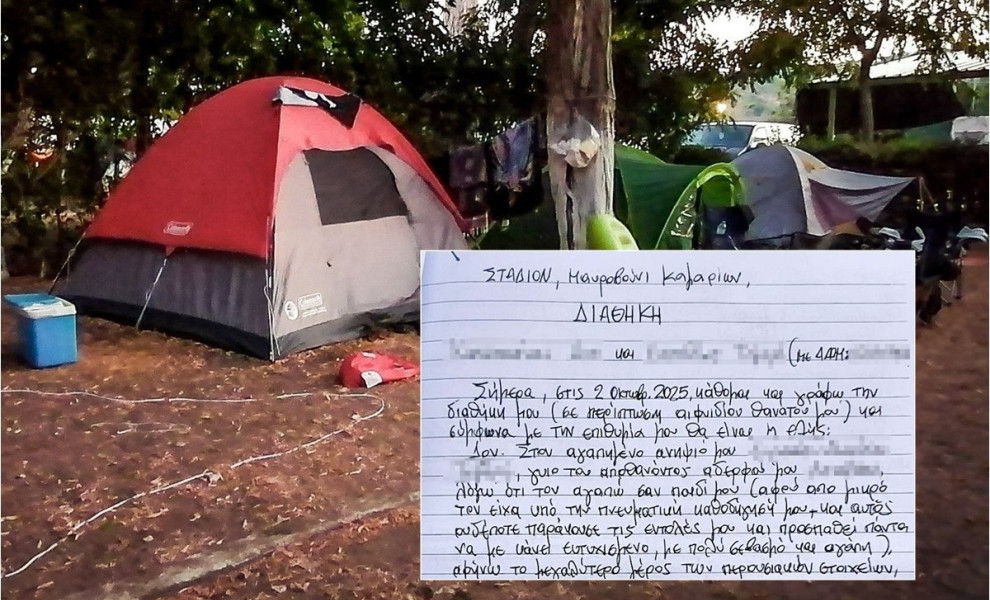 Coleman
Coleman
ΣΤΑΔΙΟΝ, Μαυροβούνι Καμαρίων,
ΔΙΑΘΗΚΗ
και (με ΑΦΜ:
Σήμερα, στις 2 Οκτωβ. 2025, κάθομαι και γράφω την
διαθήκη μου (σε περίπτωση αιφνιδίου θανάτου μου) και
σύμφωνα με την επιθυμία μου θα είναι η εξής:
1ον. Στον αγαπημένο ανηψιό μου
, γυιο του αποθανόντος αδερφού μου ,
λόγω ότι τον αγαπώ σαν παιδί μου (αφού από μικρό
τον είχα υπό την πνευματική καθοδήγησή μου, και αυτός
ουδέποτε παράκουσε τις εντολές μου και προσπαθεί πάντα
να με κάνει ευτυχισμένο, με πολύ σεβασμό και αγάπη),
αφήνω το μεγαλύτερο μέρος των περουσιακών στοιχείων,